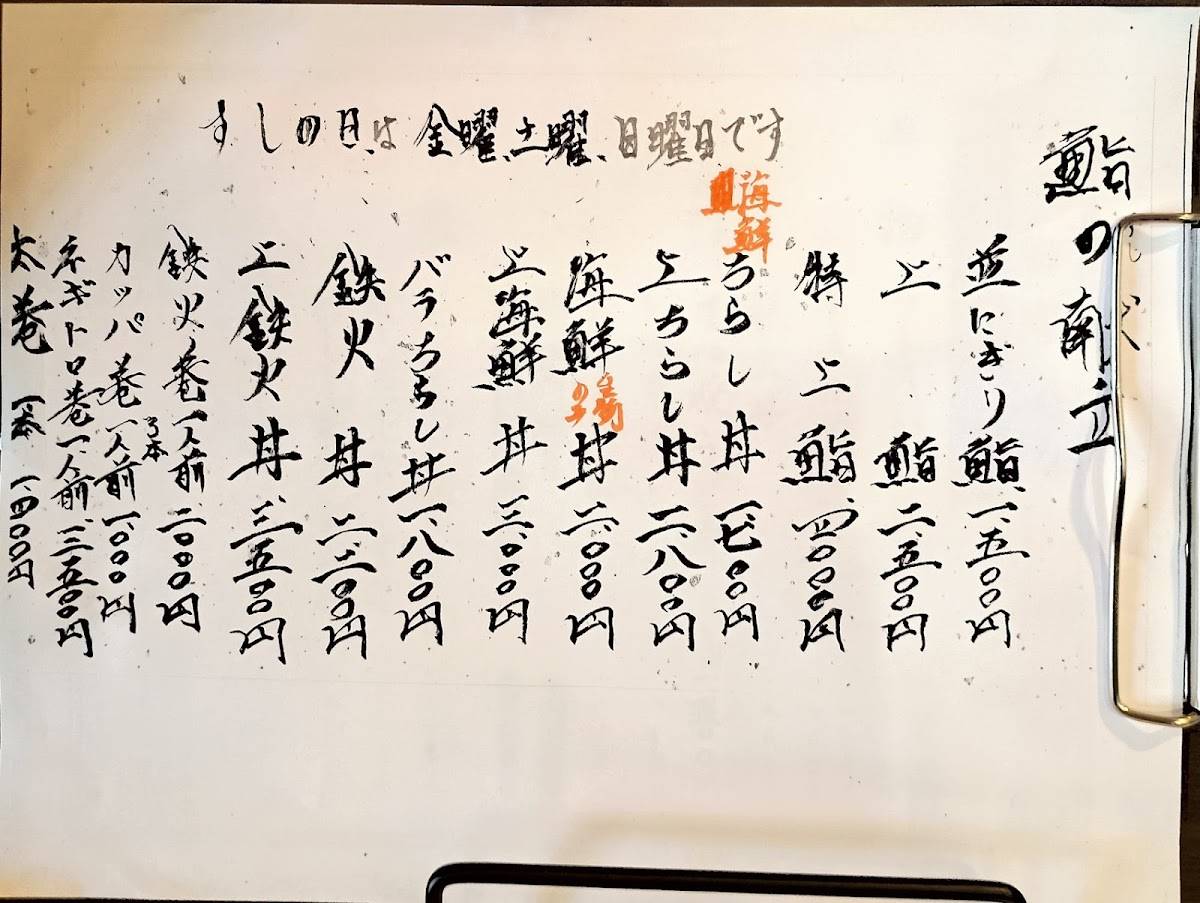 すしの日は金曜、土曜、日曜日です
鮨の献立
並にぎり鮨 一、五〇〇円
上鮨 二、五〇〇円
特上鮨 四、〇〇〇円
海鮮
ちらし丼 一、七〇〇円
上ちらし丼 二、八〇〇円
海鮮丼 二、〇〇〇円
上海鮮丼 三、〇〇〇円
バラちらし丼 一、八〇〇円
鉄火丼 二、二〇〇円
上鉄火丼 三、五〇〇円
鉄火巻一人前 二、〇〇〇円
3本
カッパ巻一人前 一、〇〇〇円
ネギトロ巻一人前 三、五〇〇円
太巻 一本 一、四〇〇円